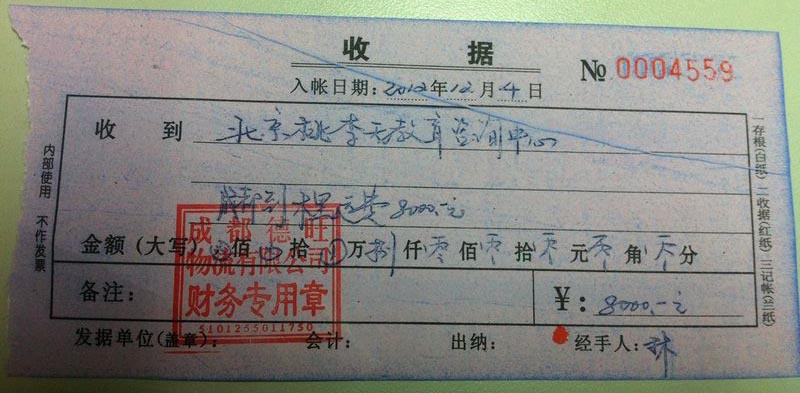 收 据
№ 0004559
入帐日期：2012年12月4日
收 到 北京桃李天教育咨询中心
运费8000.-元
金额（大写） 佰 拾 万 捌 仟 零 佰 零 拾 零 元 零 角 零 分
备注：
¥：8000.-元
发据单位(盖章)： 会计： 出纳： 经手人：林
内部使用 不作发票
一存根(白纸) 二收据(红纸) 三记帐(兰纸)
成都德旺
物流有限公司
财务专用章
5101265011750